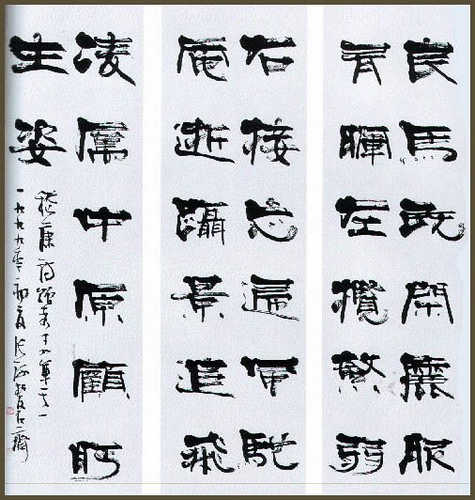 良馬既閑麗服
有暉左攬繁弱
右接忘歸風馳
電逝躡景追飛
凌厲中原顧盼
生姿
嵇康詩贈秀才之一
一九九九年初夏張海